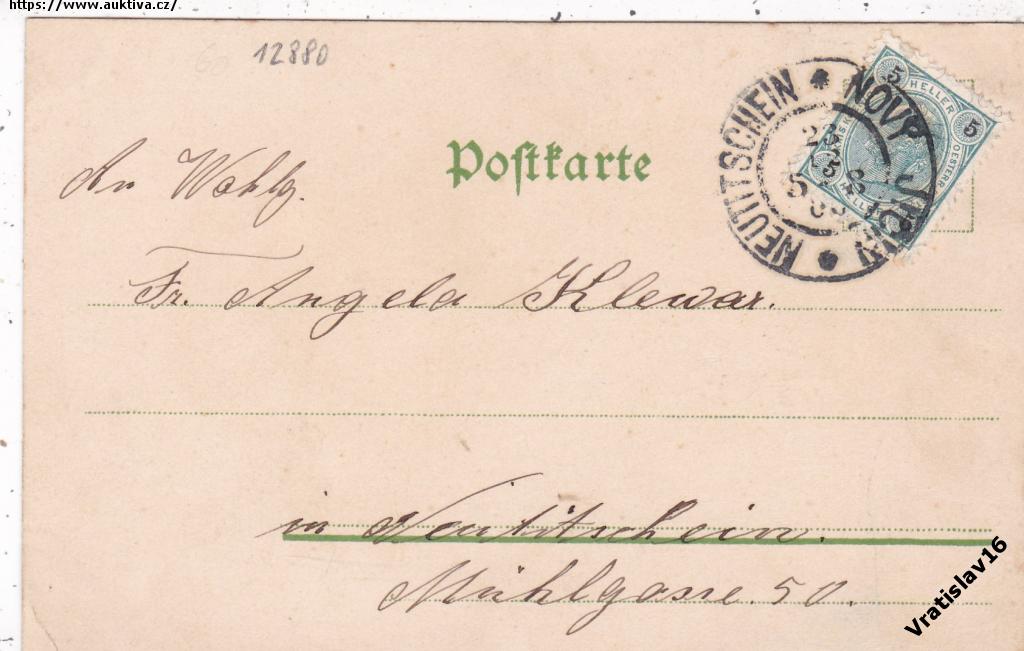 https://www.auktiva.cz/
12880
Postkarte
NEUTITSCHEIN * NOVÝ JIČÍN *
5 HELLER 5
OESTERR
An Wohlg.
Fr. Angela Klewar.
in Neutitschein.
Mühlgasse. 50.
Vratislav16